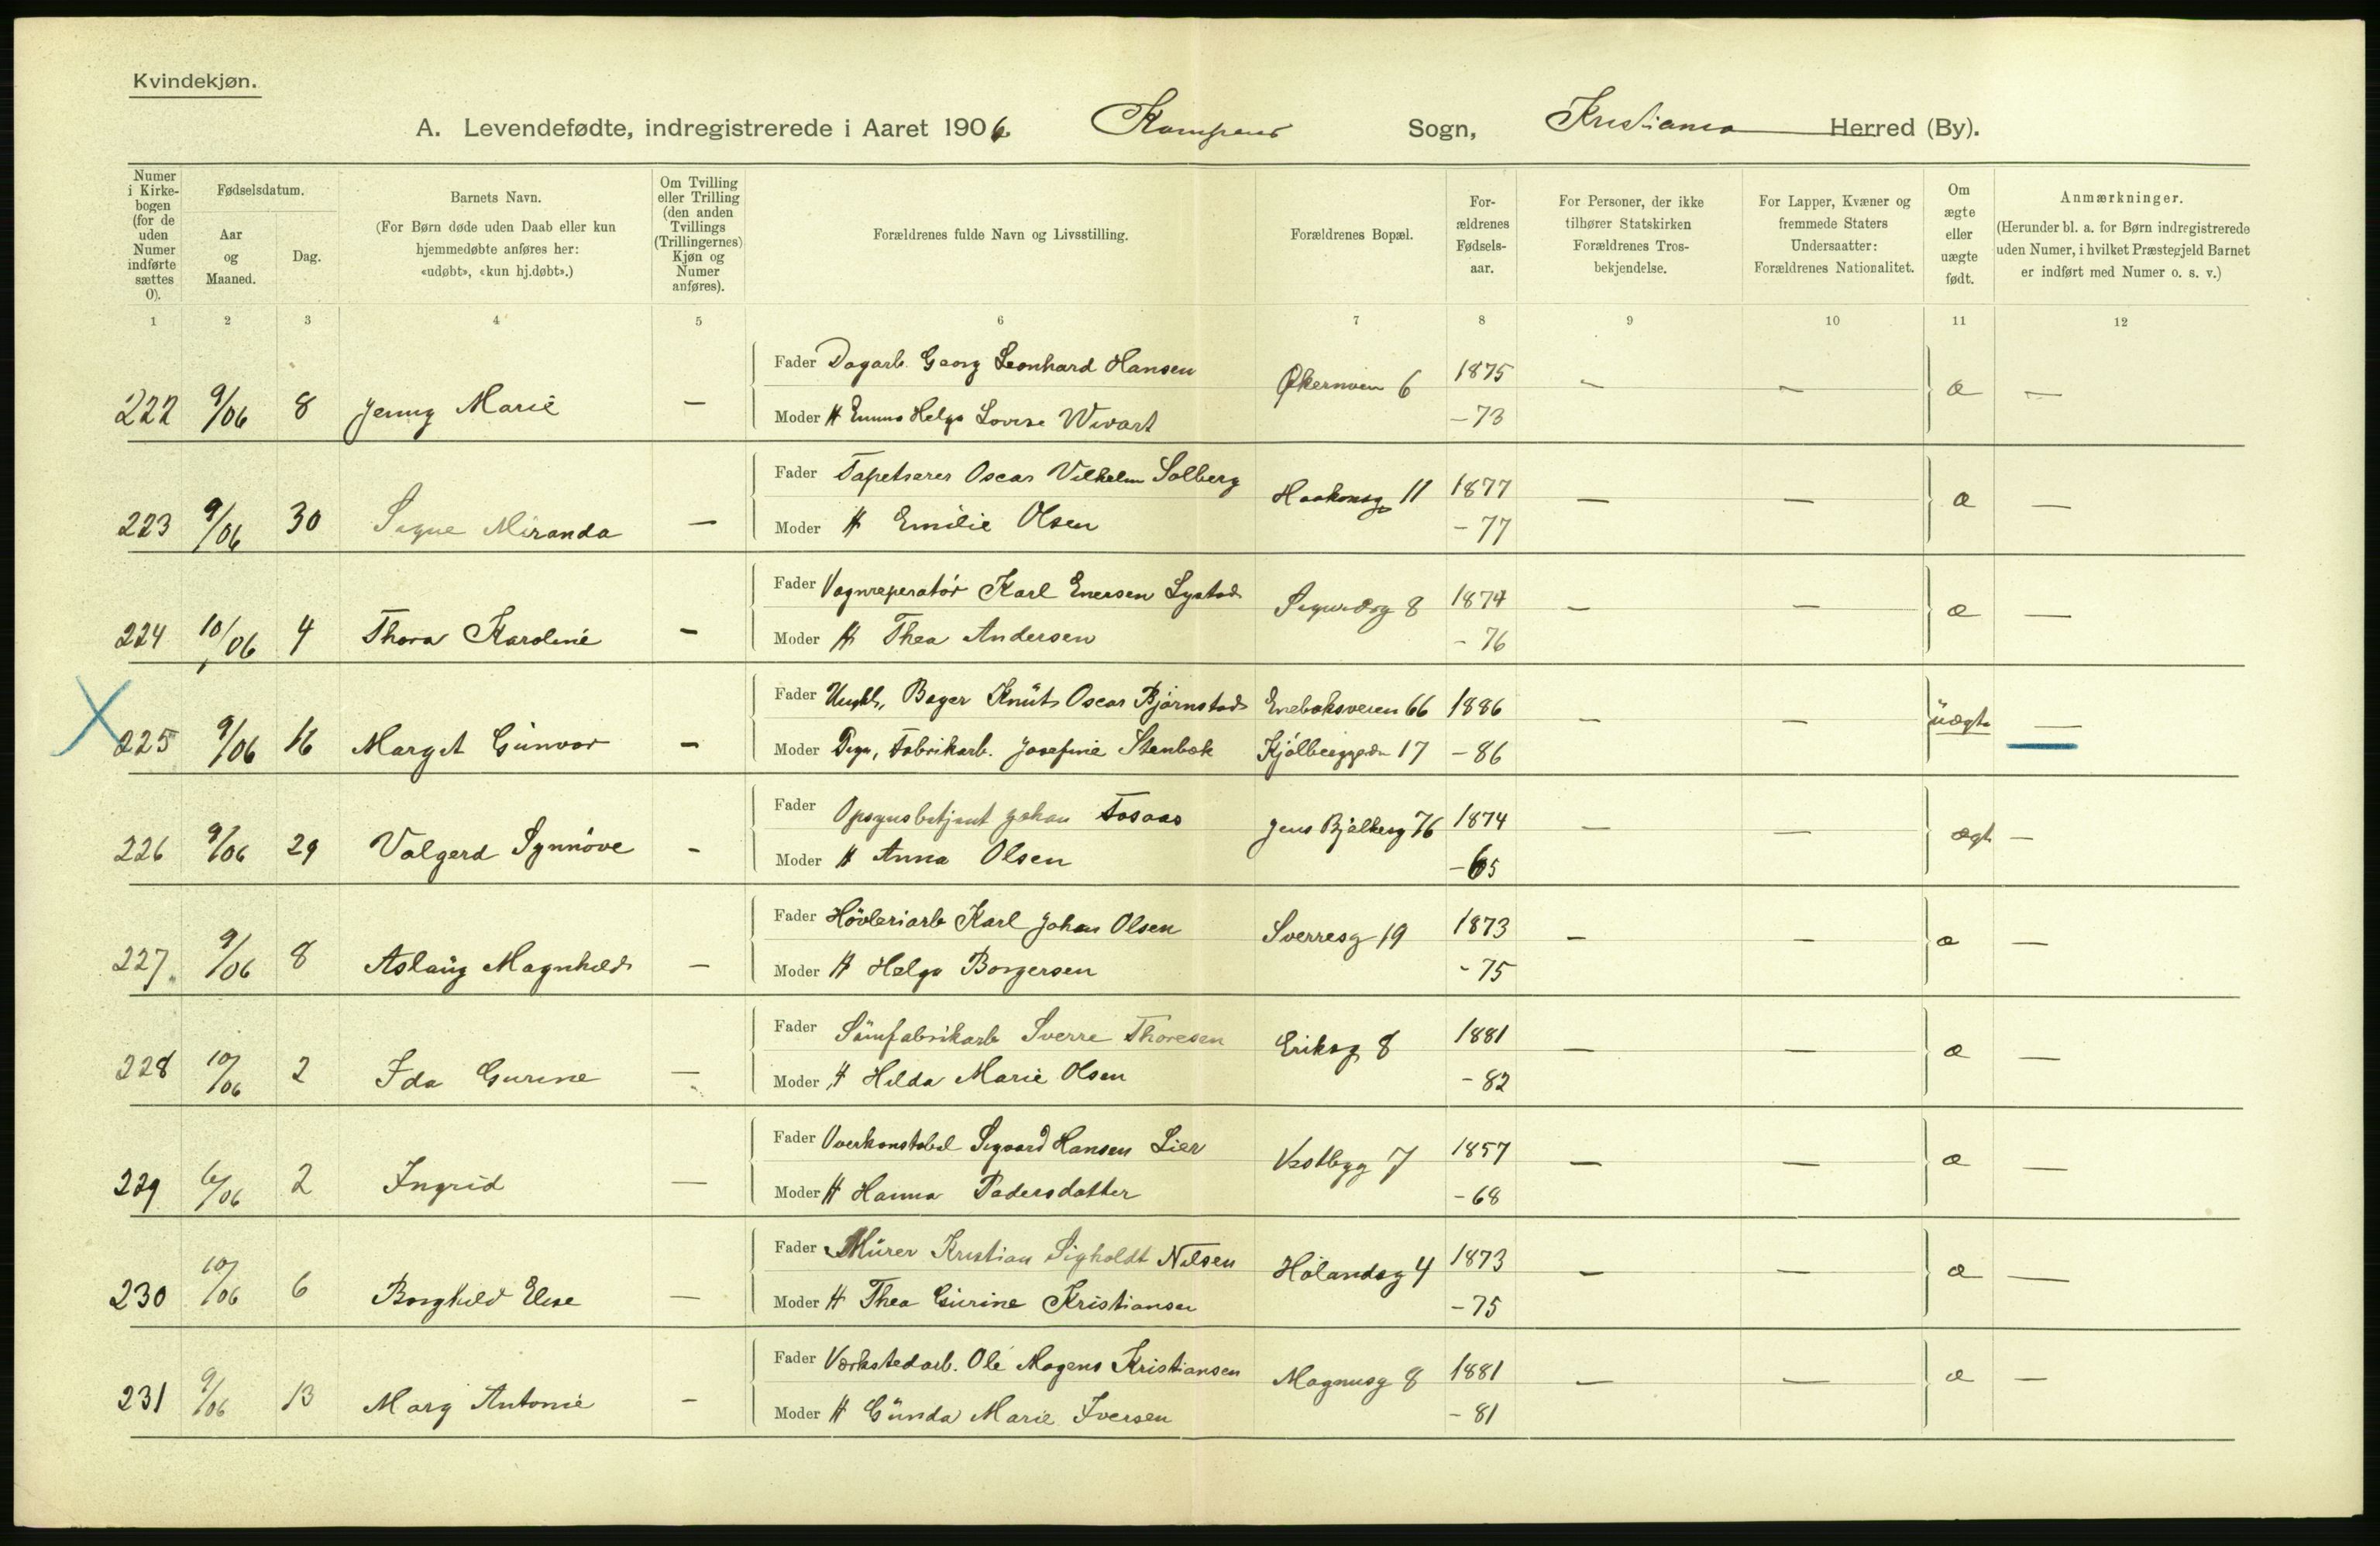 Kvindekjøn.
A. Levendefødte, indregistrerede i Aaret 1906 Kampens Sogn, Kristiania Herred (By).
Numer i Kirkebogen (for de uden Numer indførte sættes 0).
Fødselsdatum.
Aar og Maaned.
Dag.
Barnets Navn.
(For Børn døde uden Daab eller kun hjemmedøbte anføres her: «udøbt», «kun hj.døbt».)
Om Tvilling eller Trilling (den anden Tvillings (Trillingernes) Kjøn og Numer anføres).
Forældrenes fulde Navn og Livsstilling.
Forældrenes Bopæl.
Forældrenes Fødselsaar.
For Personer, der ikke tilhører Statskirken Forældrenes Trosbekjendelse.
For Lapper, Kvæner og fremmede Staters Undersaatter: Forældrenes Nationalitet.
Om ægte eller uægte født.
Anmærkninger.
(Herunder bl. a. for Børn indregistrerede uden Numer, i hvilket Præstegjeld Barnet er indført med Numer o. s. v.)
1 2 3 4 5 6 7 8 9 10 11 12
Fader Dagarb. Georg Leonhard Hansen Økernveien 6 1875
222 9/06 8 Jenny Marie — — — æ —
Moder H Emma Helga Lovise Wivart – 73
Fader Tapetserer Oscar Vilhelm Solberg Haakonsg 11 1877
223 9/06 30 Signe Miranda — — — æ —
Moder H Emilie Olsen – 77
Fader Vognreperatör Karl Enersen Lystad Sigurdsg 8 1874
224 10/06 4 Thora Karoline — — — æ —
Moder H Thea Andersen – 76
Fader Ungk., Bager Knut Oscar Bjørnstad Enebakveien 66 1886
225 9/06 16 Margit Gunvor — — — uægte —
Moder Pige, Fabrikarb. Josefine Stenbæk Kjølberggaden 17 – 86
Fader Opsynsbetjent Johan Fosaas Jens Bjelkesg 76 1874
226 9/06 29 Valgerd Synnöve — — — ægte —
Moder H Anna Olsen – 65
Fader Hövleriarb Karl Johan Olsen Sverresg 19 1873
227 9/06 8 Aslaug Magnhild — — — æ —
Moder H Helga Borgersen – 75
Fader Sömfabrikarb Sverre Thoresen Eriksg 8 1881
228 10/06 2 Ida Gurine — — — æ —
Moder H Hilda Marie Olsen – 82
Fader Overkonstabel Sigvard Hansen Lier Vestbyg 7 1857
229 6/06 2 Ingrid — — — æ —
Moder H Hanna Pedersdatter – 68
Fader Murer Kristian Sigholdt Nilsen Hølandsg 4 1873
230 10/06 6 Borghild Elise — — — æ —
Moder H Thea Gurine Kristiansen – 75
Fader Værkstedarb. Ole Mogens Kristiansen Magnusg 8 1881
231 9/06 13 Mary Antonie — — — æ —
Moder H Gunda Marie Iversen – 81